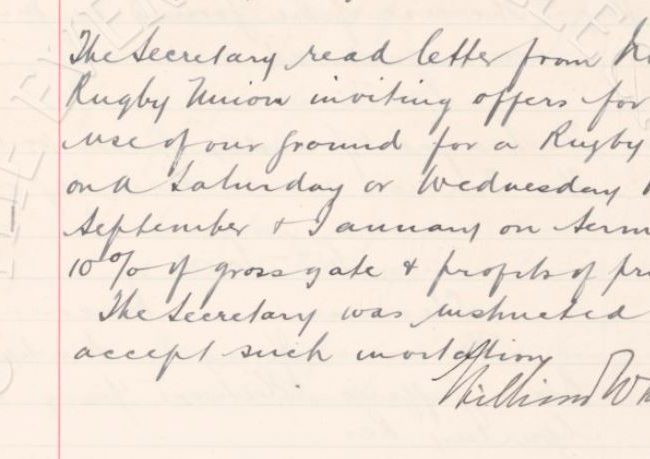 The Secretary read letter from
Rugby Union inviting offers for
use of our ground for a Rugby
on a Saturday or Wednesday
September & January on
10% of gross gate & profits of
The Secretary was instructed
accept such invitation
William